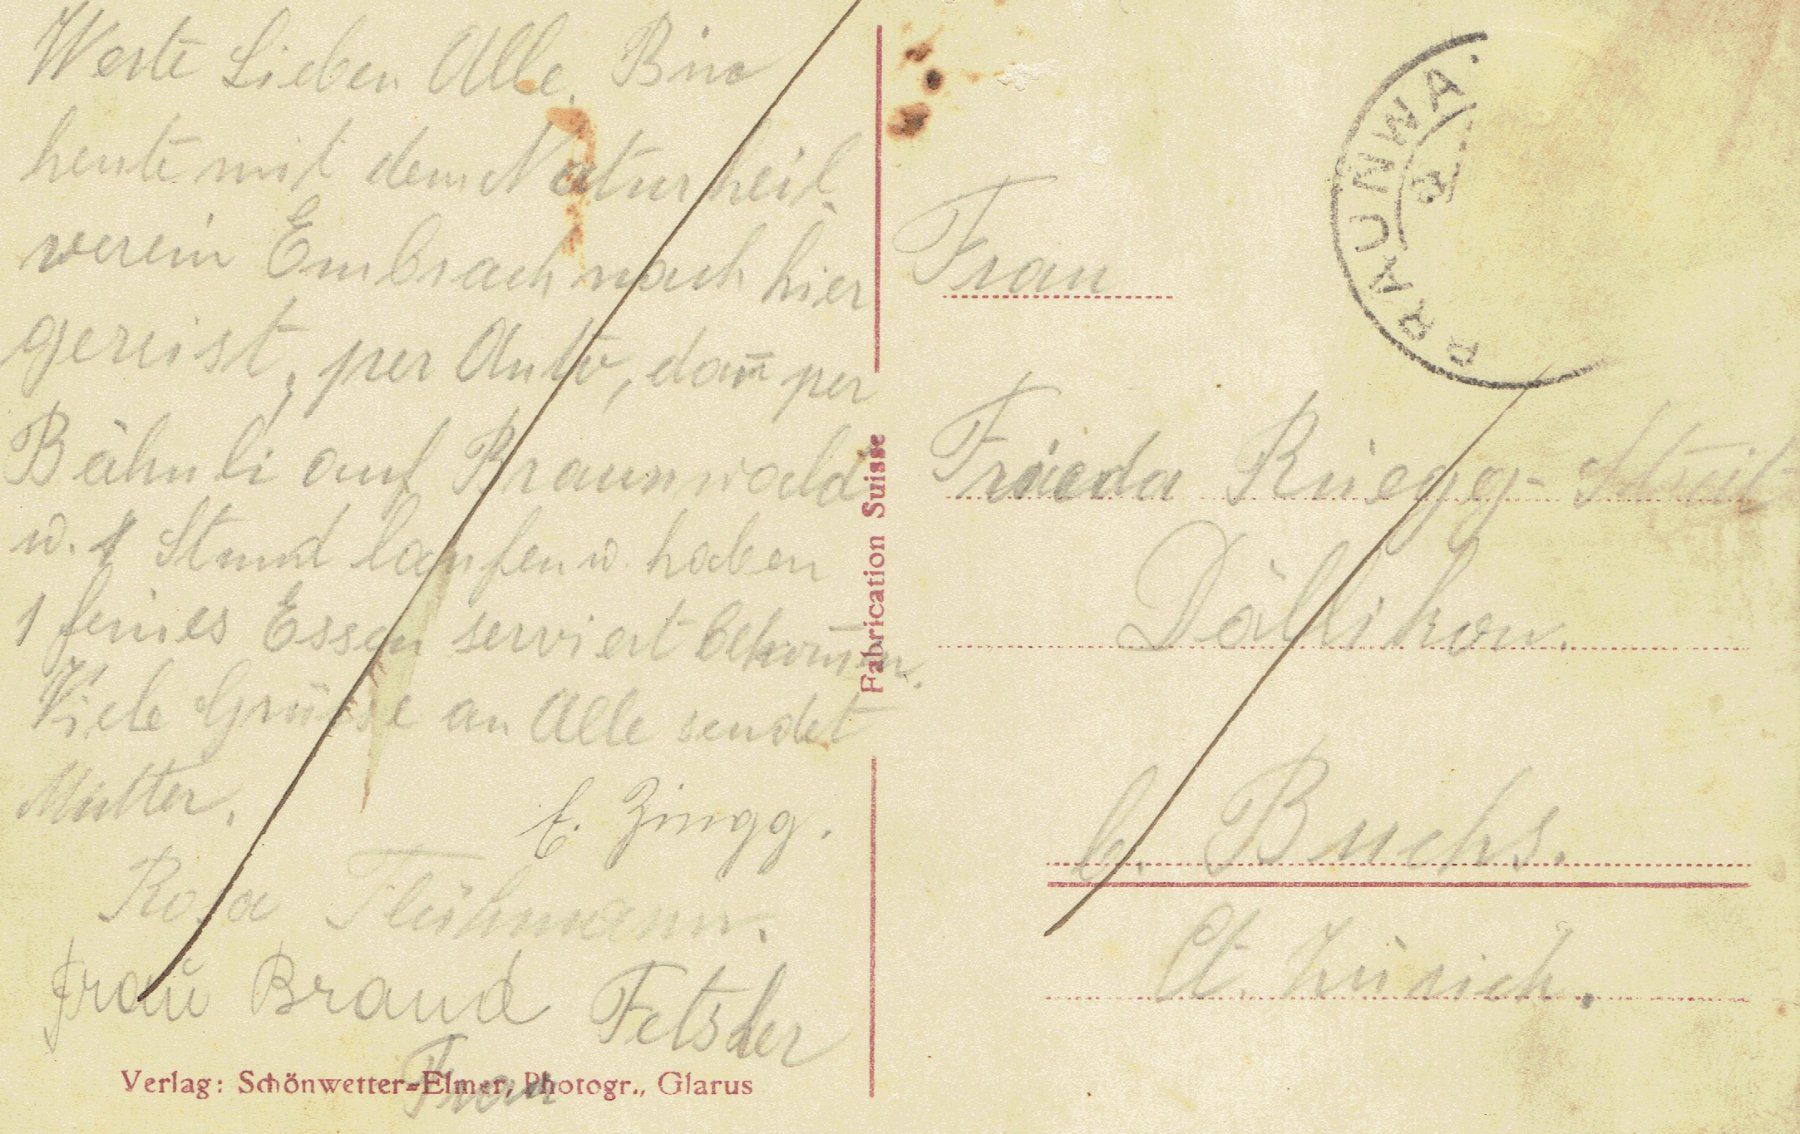 Werte Lieben Alle. Bin
heute mit dem Naturheil-
verein Embrach nach hier
gereist, per Auto, dann̄ per
Bähnli auf Braunwald
u. 1 Stund laufen u. haben
1 feines Essen serviert bekom̄en.
Viele Grüsse an Alle sendet
Mutter.
E. Zingg.
Rosa Flühmann.
Frau Brand
Frau
Verlag: Schönwetter-Elmer, Photogr., Glarus
Fabrication Suisse
BRAUNWA
Frau
Frieda Rüegg-
Dällikon.
b. Buchs.
Ct. Zürich.